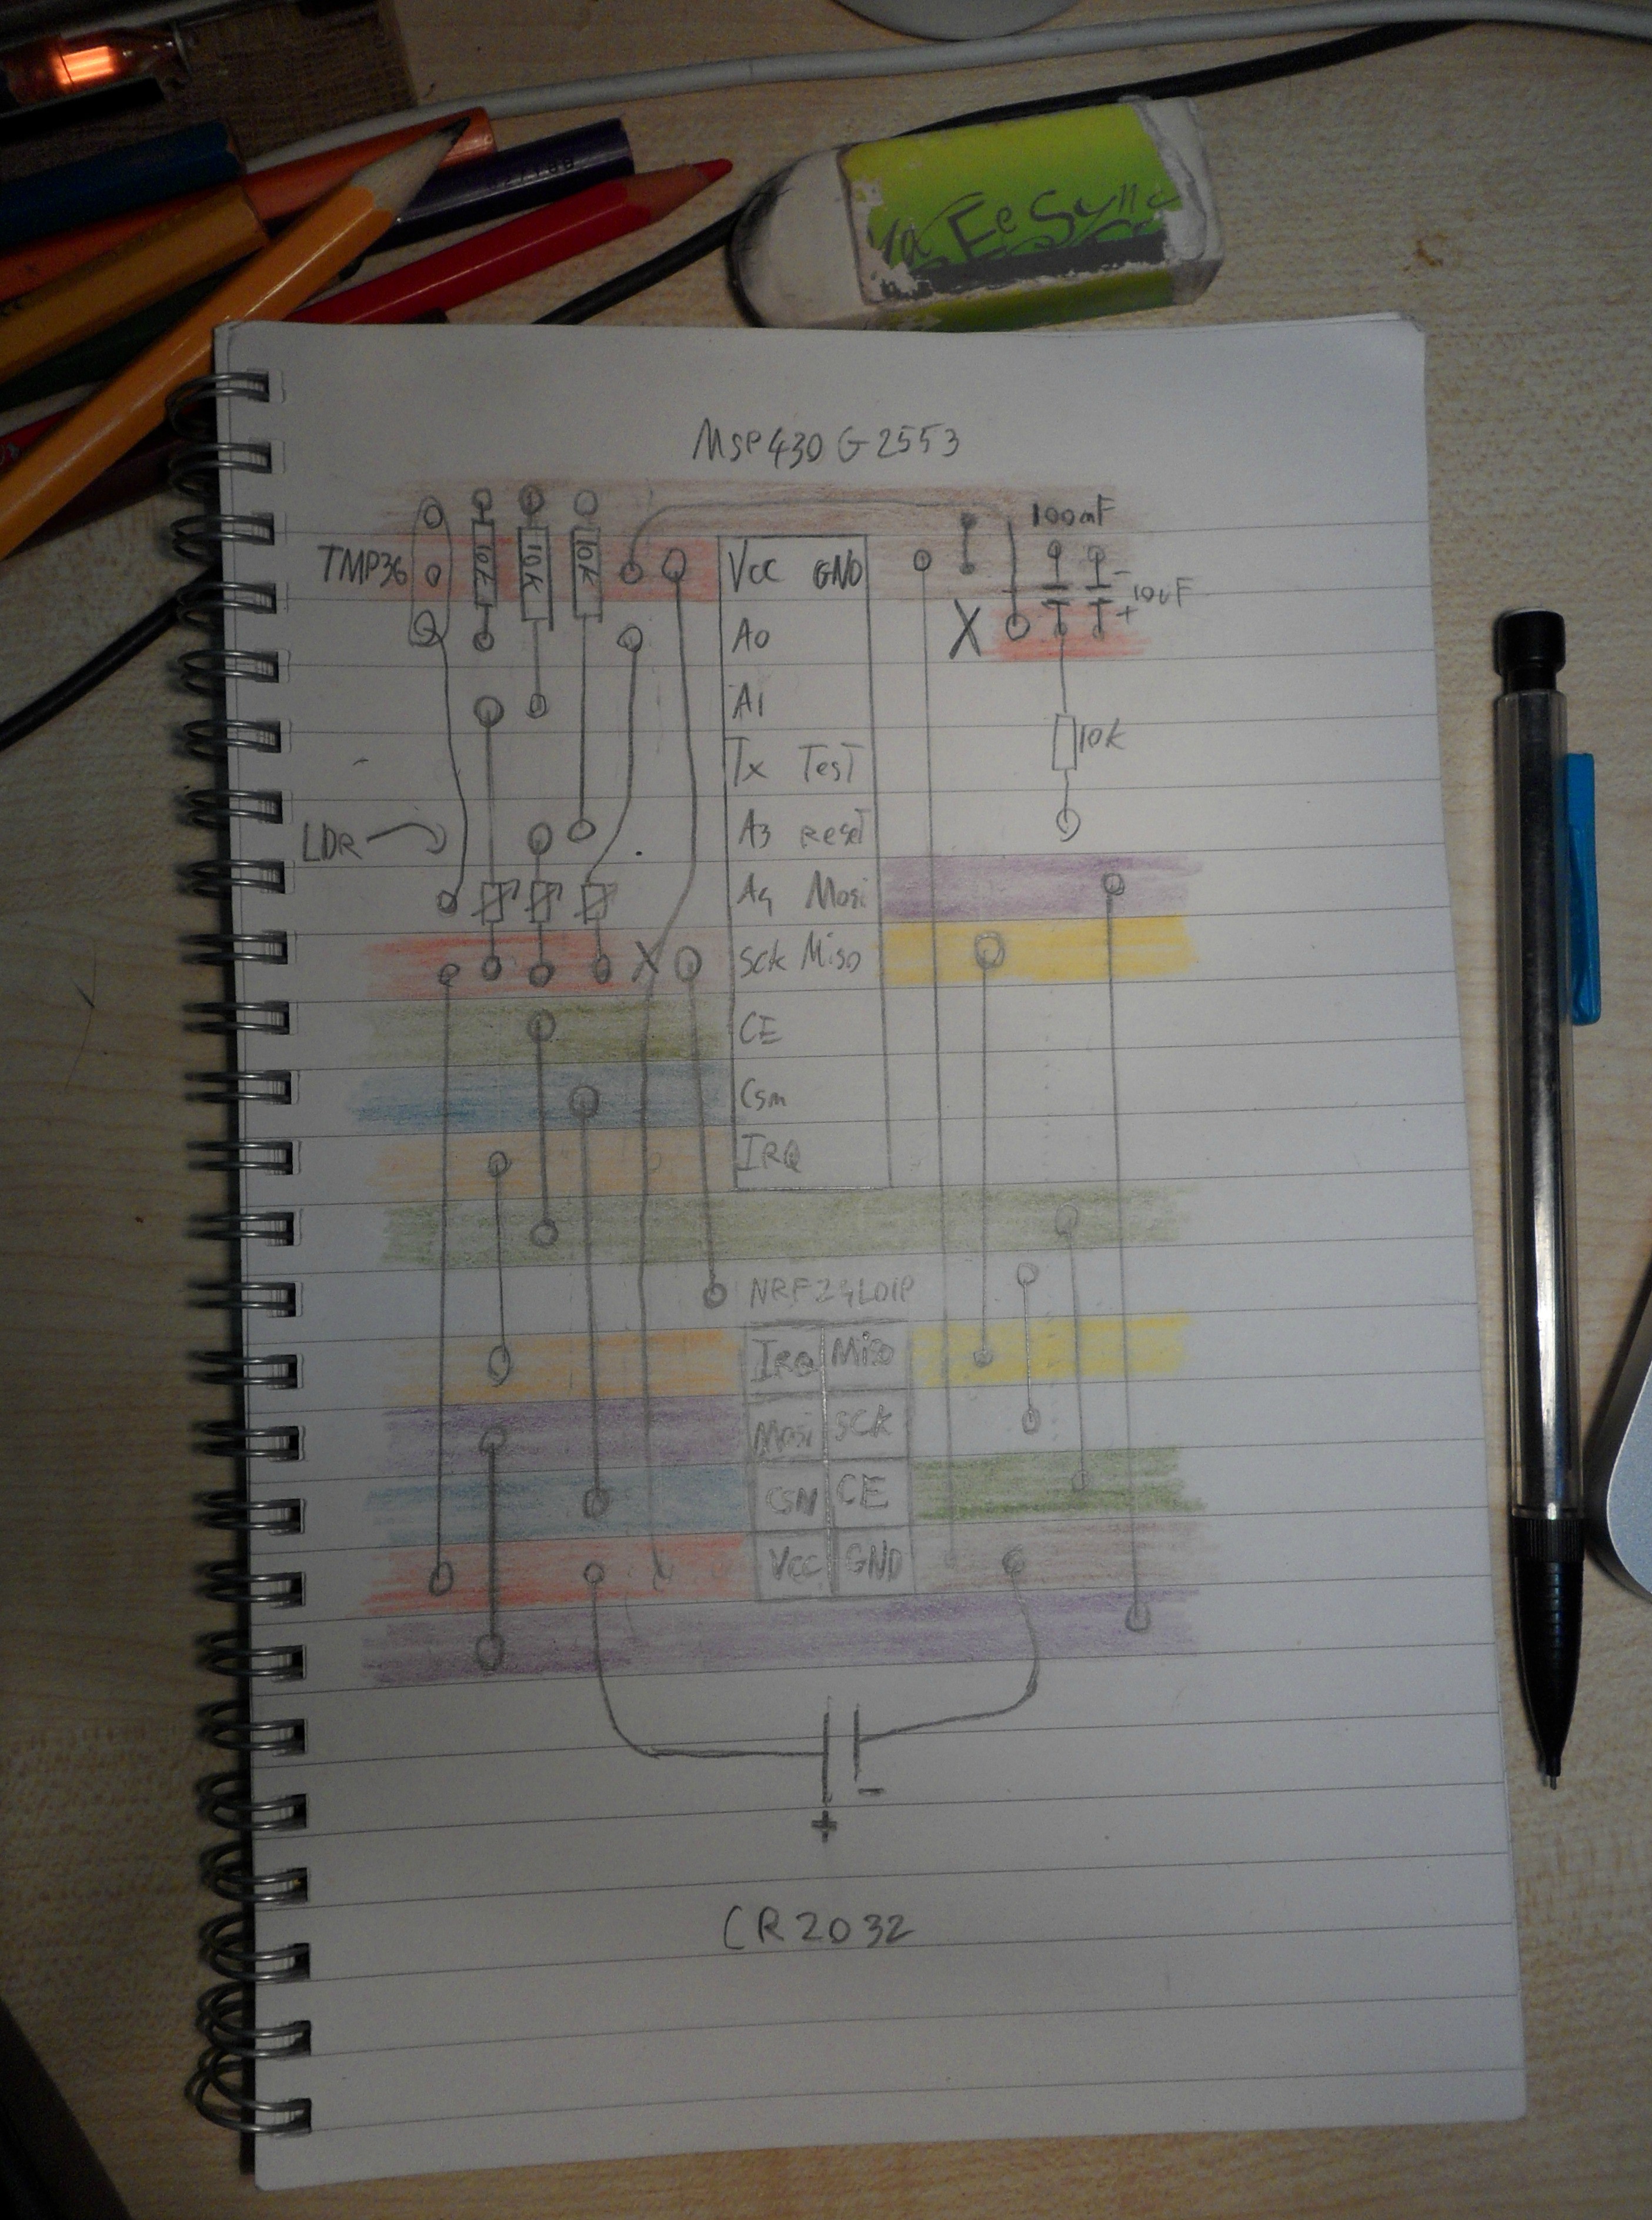 MSP430G2553
100nF
TMP36 10k 10k 10k Vcc GND - 10uF
A0 X +
A1
10k
Tx Test
LDR A3 reset
A4 Mosi
X SCK Miso
CE
Csn
IRQ
NRF24L01P
IRQ Miso
Mosi SCK
CSN CE
Vcc GND
-
+
CR2032